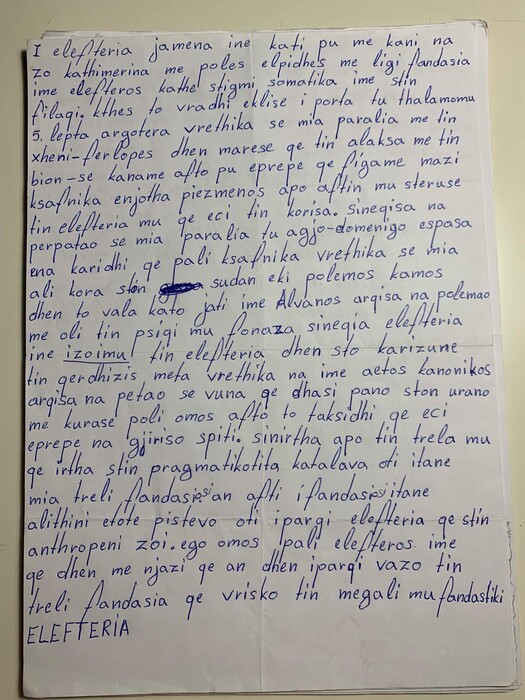 I elefteria jamena ine kati pu me kani na
zo kathimerina me poles elpidhes me ligi fandasia
ime elefteros kathe stigmi somatika ime stin
filagi. kthes to vradhi eklise i porta tu thalamomu
5. lepta argotera vrethika se mia paralia me tin
xheni-ferlopes dhen marese qe tin alaksa me tin
bion-se kaname afto pu eprepe qe figame mazi
ksafnika enjotha piezmenos apo aftin mu steruse
tin elefteria mu qe eci tin korisa. sineqisa na
perpatao se mia paralia tu agjo-domenigo espasa
ena karidhi qe pali ksafnika vrethika se mia
ali kora ston sudan eki polemos kamos
dhen to vala kato jati ime Alvanos arqisa na polemao
me oli tin psiqi mu fonaza sineqia elefteria
ine izoimu tin elefteria dhen sto karizune
tin qerdhizis meta vrethika na ime aetos kanonikos
arqisa na petao se vuna qe dhasi pano ston urano
me kurase poli omos afto to taksidhi qe eci
eprepe na gjiriso spiti. sinirtha apo tin trela mu
qe irtha stin pragmatikotita katalava oti itane
mia treli fandasi an afti i fandasi itane
alithini etote pistevo oti iparqi elefteria qe stin
anthropeni zoi. ego omos pali elefteros ime
qe dhen me njazi qe an dhen iparqi vazo tin
treli fandasia qe vrisko tin megali mu fandastiki
ELEFTERIA